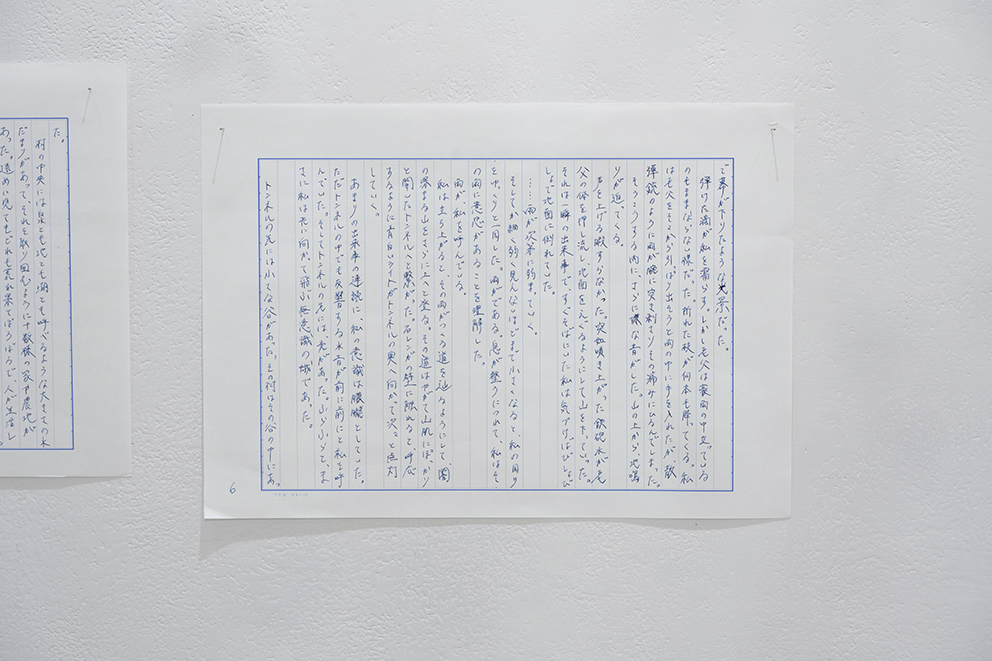 で幕が下りたような光景だった。
弾けた滴が私を濡らす。しかし老父は豪雨の中立っている
のもままならない様だった。折れた枝が何本も降ってくる。私
は老父をそこから引っぱり出そうと雨の中に手を入れたが、散
弾銃のように雨が腕に突き刺さりその痛みにひるんでしまった。
そうこうする内に、さらに嫌な音がした。山の上から、地鳴
りが迫ってくる。
声を上げる暇すらなかった。突如噴き上がった鉄砲水が老
父の体を押し流し、地面をえぐるようにして山を下っていった。
それは一瞬の出来事で、すぐそばにいた私は気づけばびしょび
しょで地面に倒れていた。
……雨が次第に弱まっていく。
そしてか細く弱く見えないほどまで小さくなると、私の周り
をゆっくりと一周した。雨がである。息が整うにつれて、私はそ
の雨に意思があることを理解した。
雨が私を呼んでいる。
私は立ち上がると、その雨がつくる道を辿るようにして、闇
の深まる山をさらに上へと登る。その道はやがて山肌にぽっかり
と開いたトンネルへと繋がった。石レンガの壁に触れると、呼応
するように青白いライトがトンネルの奥へ向かって次々と点灯
していく。
あまりの出来事の連続に、私の意識は朦朧としていた。
ただトンネルの中でも反響する水音が前に前にと私を呼
んでいた。そしてトンネルの先には、光があった。ふらふらと、ま
さに私は光に向かって飛ぶ無意識の蛾であった。
トンネルの先は小さな谷があった。その村はその谷の中にあっ
6
た。
村の中央には泉とも池とも湖とも呼べるような大きさの水
だまりがあって、それを取り囲むように十数棟の家や農地が
あった。遠めに見てもどれも荒れ果てぼろぼろで、人が生活し